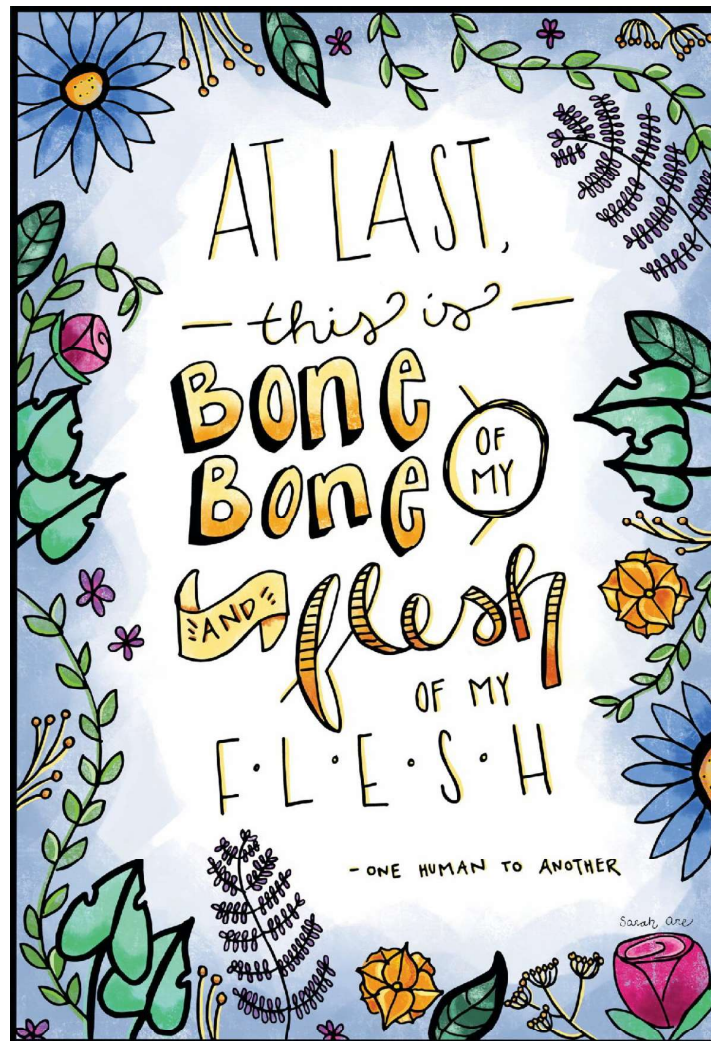 AT LAST,
— this is —
Bone
Bone OF MY
AND flesh
OF MY
F·L·E·S·H
- ONE HUMAN TO ANOTHER
Sarah Are